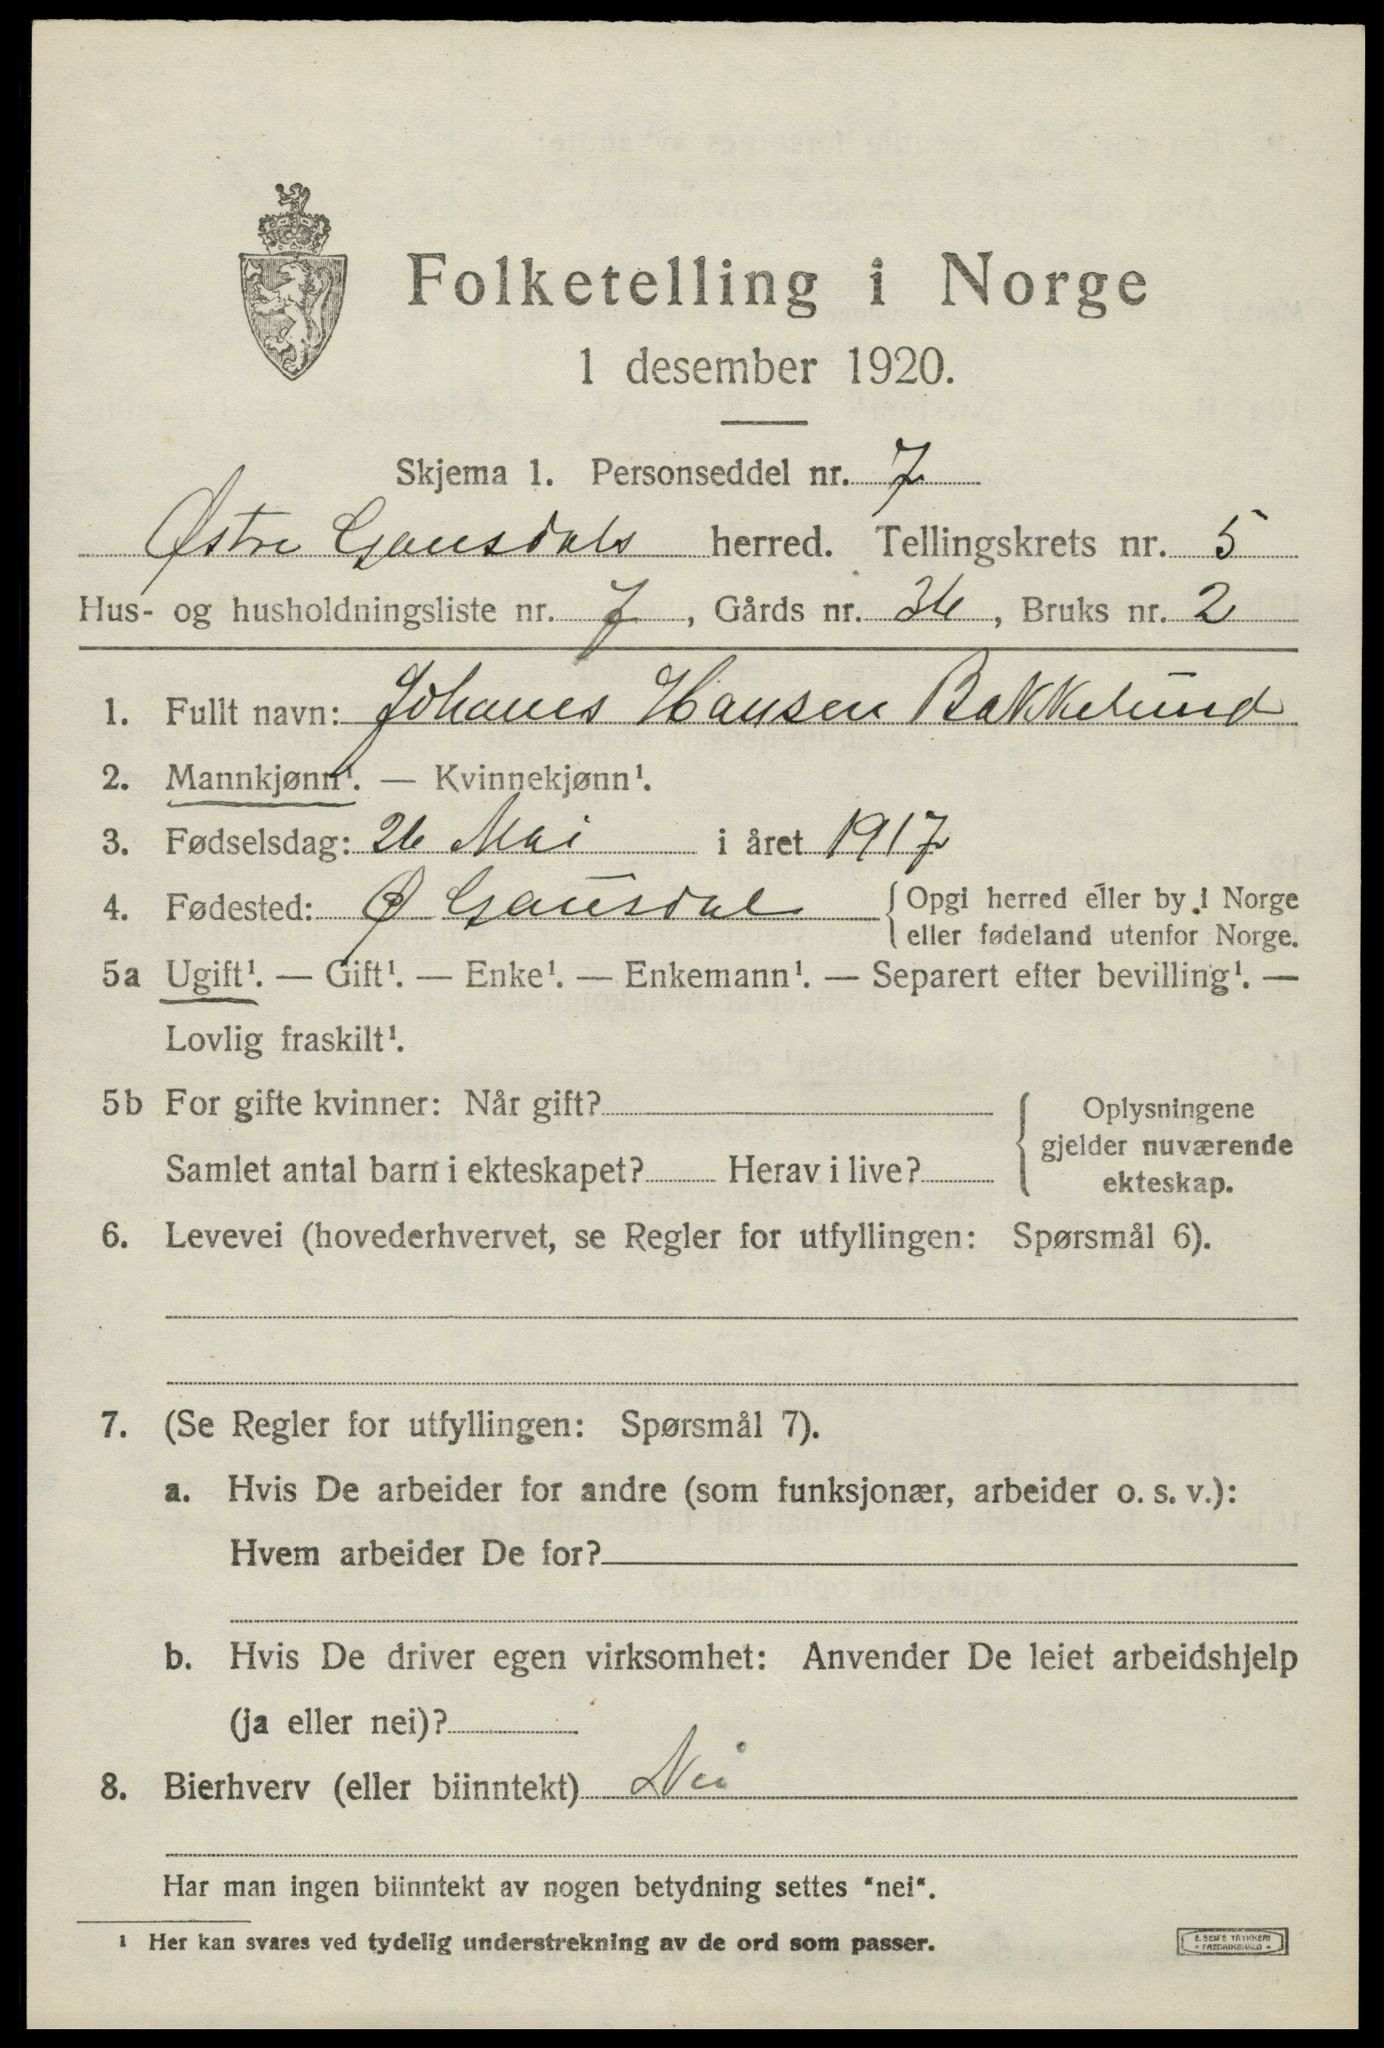 Folketelling i Norge
1 desember 1920.
Skjema 1. Personseddel nr. 7
Østre Gausdals herred. Tellingskrets nr. 5
Hus- og husholdningsliste nr. 7, Gårds nr. 36, Bruks nr. 2
1. Fullt navn: Johanes Hansen Bakkelund
2. Mannkjønn¹. — Kvinnekjønn¹.
3. Fødselsdag: 26 Mai i året 1917
4. Fødested: Ø Gausdal {Opgi herred eller by i Norge
eller fødeland utenfor Norge.
5a Ugift¹. — Gift¹. — Enke¹. — Enkemann¹. — Separert efter bevilling¹. —
Lovlig fraskilt¹.
5b For gifte kvinner: Når gift? { Oplysningene
gjelder nuværende
Samlet antal barn i ekteskapet? Herav i live? ekteskap.
6. Levevei (hovederhvervet, se Regler for utfyllingen: Spørsmål 6).
7. (Se Regler for utfyllingen: Spørsmål 7).
a. Hvis De arbeider for andre (som funksjonær, arbeider o. s. v.):
Hvem arbeider De for?
b. Hvis De driver egen virksomhet: Anvender De leiet arbeidshjelp
(ja eller nei)?
8. Bierhverv (eller biinntekt) Nei
Har man ingen biinntekt av nogen betydning settes "nei".
¹ Her kan svares ved tydelig understrekning av de ord som passer.
E. SEM'S TRYKKERI
* FREDRIKSHALD *